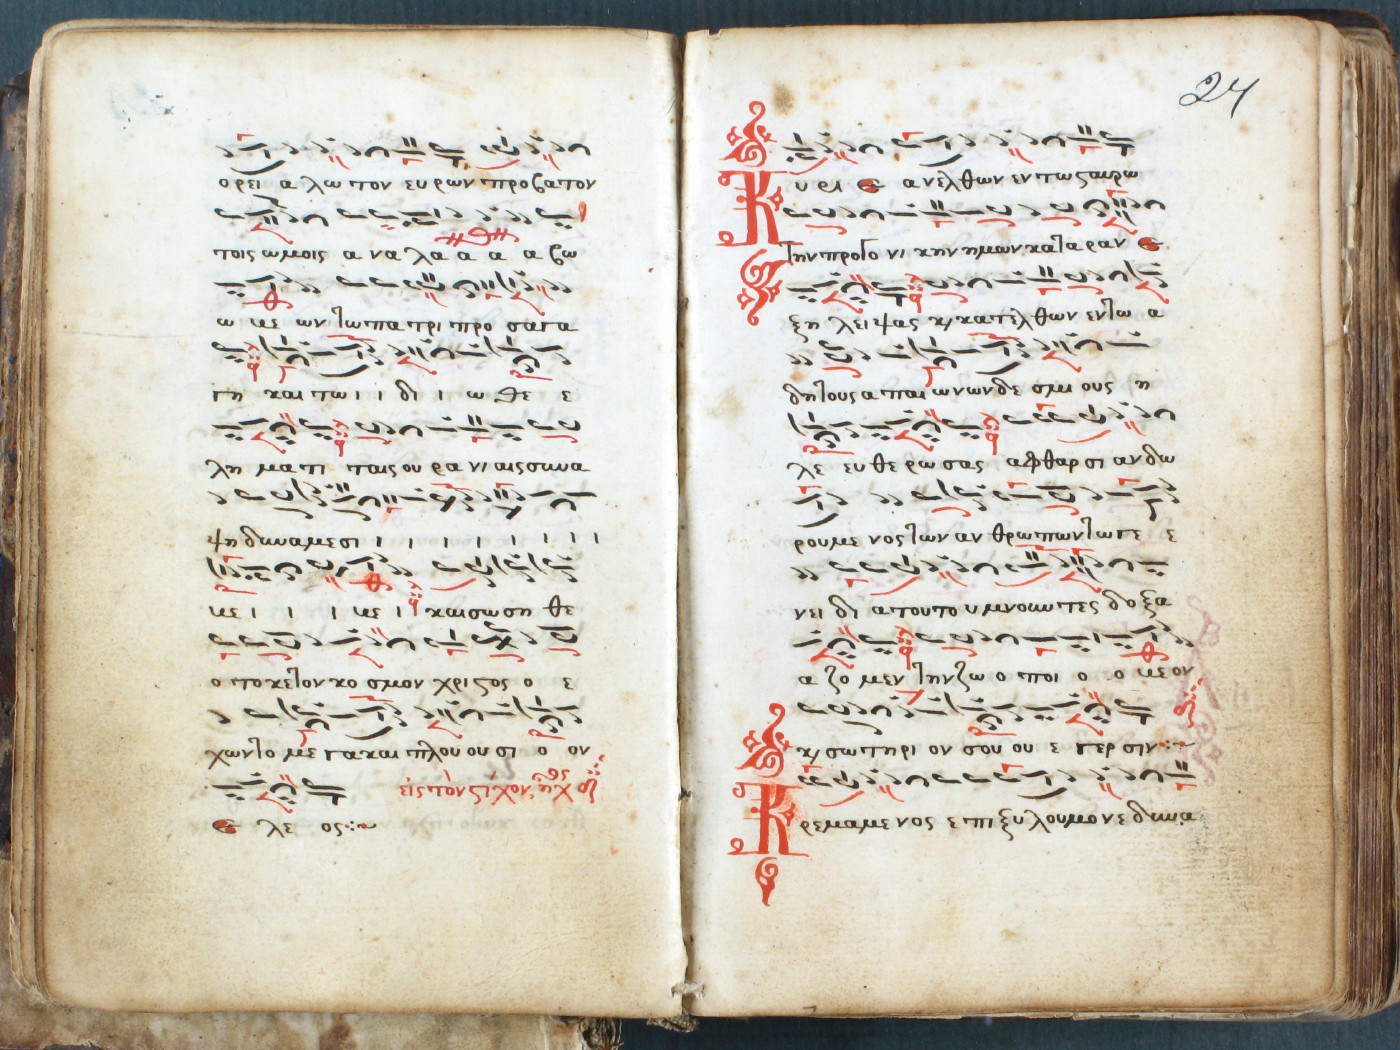 ορει α λω τον ευ ρων προβατον
τοις ωμοις α να λα α α α βω
ω με ων τω πα τρι προ σα γα
γη και τω ι ι δι ι ω θε ε
λη μα τι ταις ου ρα νι αις συνα
ψη δυναμεσι ι ι ι ι ι ι ι ι
με ι ι ι με ι και σω ση θε
ο το κε τον κο σμον χριστος ο ε
χων το με γα και πλου ου σι ο ον
ε λε ος
εἰς τὸν στίχον, ἦχος
24
Κυ ρι ε α νελ θων εν τω σταυρω
την προγο νι κην ημων κατα ραν ε
ξη λει ψας κ̀ κατελθων εν τω α
δη τους απ αι ωνων δε σμι ους η
λε ευ θε ρω σας αφθαρσι αν δω
ρουμε νος των αν θρωπων τω γε ε
νει δι α τουτο υ μνουντες δο ξα
α ζο μεν την ζω ο ποι ο ο με ον
κ̀ σωτηρι ον σου ου ε γερ σιν
Κρεμαμε νος ε πι ξυ λου μο νε δυνα